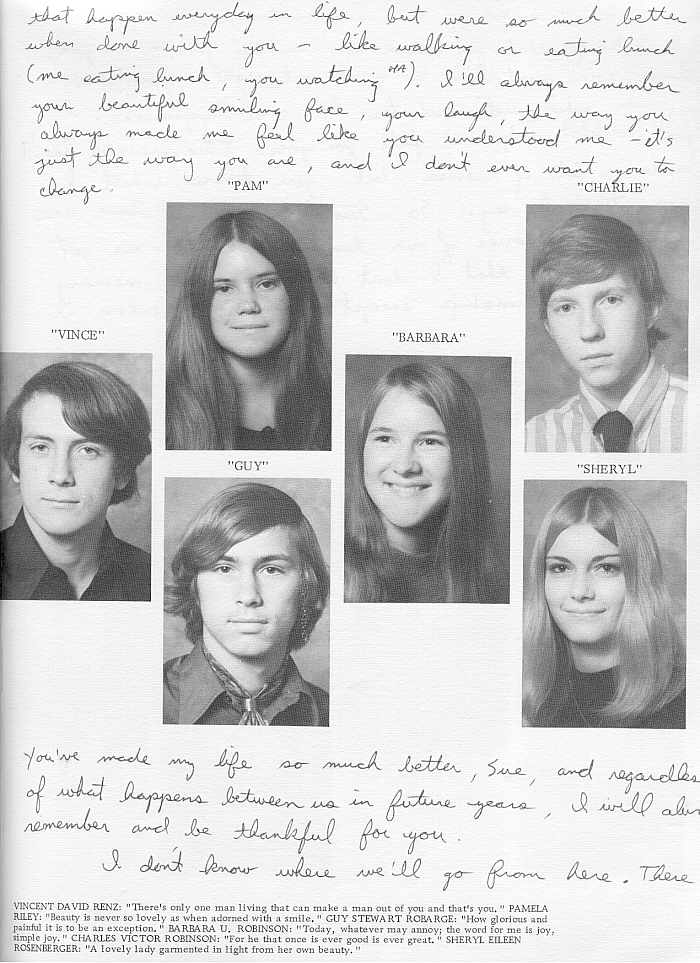 that happen everyday in life, but were so much better
when done with you – like walking or eating lunch
(me eating lunch, you watching HA). I'll always remember
your beautiful smiling face, your laugh, the way you
always made me feel like you understood me – it's
just the way you are, and I don't ever want you to
change.
"PAM"
"CHARLIE"
"VINCE"
"BARBARA"
"GUY"
"SHERYL"
You've made my life so much better, Sue, and regardles
of what happens between us in future years, I will alw
remember and be thankful for you.
I don't know where we'll go from here. There
VINCENT DAVID RENZ: "There's only one man living that can make a man out of you and that's you." PAMELA
RILEY: "Beauty is never so lovely as when adorned with a smile." GUY STEWART ROBARGE: "How glorious and
painful it is to be an exception." BARBARA U. ROBINSON: "Today, whatever may annoy; the word for me is joy,
simple joy." CHARLES VICTOR ROBINSON: "For he that once is ever good is ever great." SHERYL EILEEN
ROSENBERGER: "A lovely lady garmented in light from her own beauty."